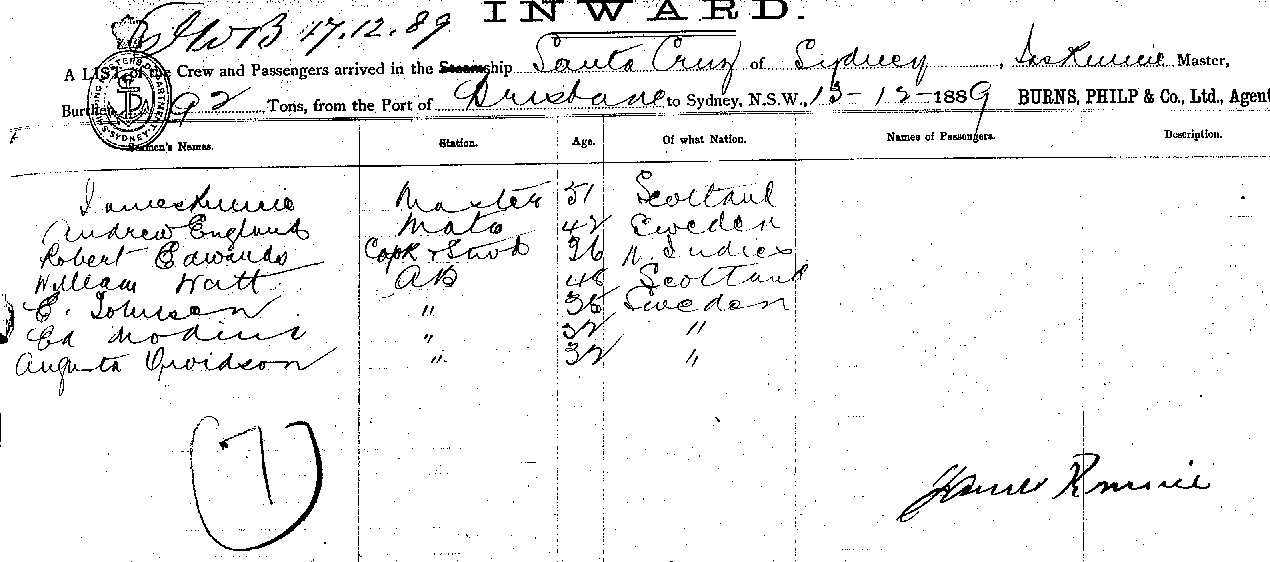 INWARD.
JWB 17.12.89
A LIST of the Crew and Passengers arrived in the Steamship Santa Cruz of Sydney, Jas Rennie Master,
Burthen 92 Tons, from the Port of Brisbane to Sydney, N.S.W., 13-12-1889 BURNS, PHILP & Co., Ltd., Agent
Seamen's Names. Station. Age. Of what Nation. Names of Passengers. Description.
James Rennie Master 51 Scotland
Andrew England Mate 42 Sweden
Robert Edwards Cook & Stwd 36 W. Indies
William Watt AB 46 Scotland
E. Johnson " 38 Sweden
Ed " 32 "
Augusta Arvidson " 32 "
7
James Rennie